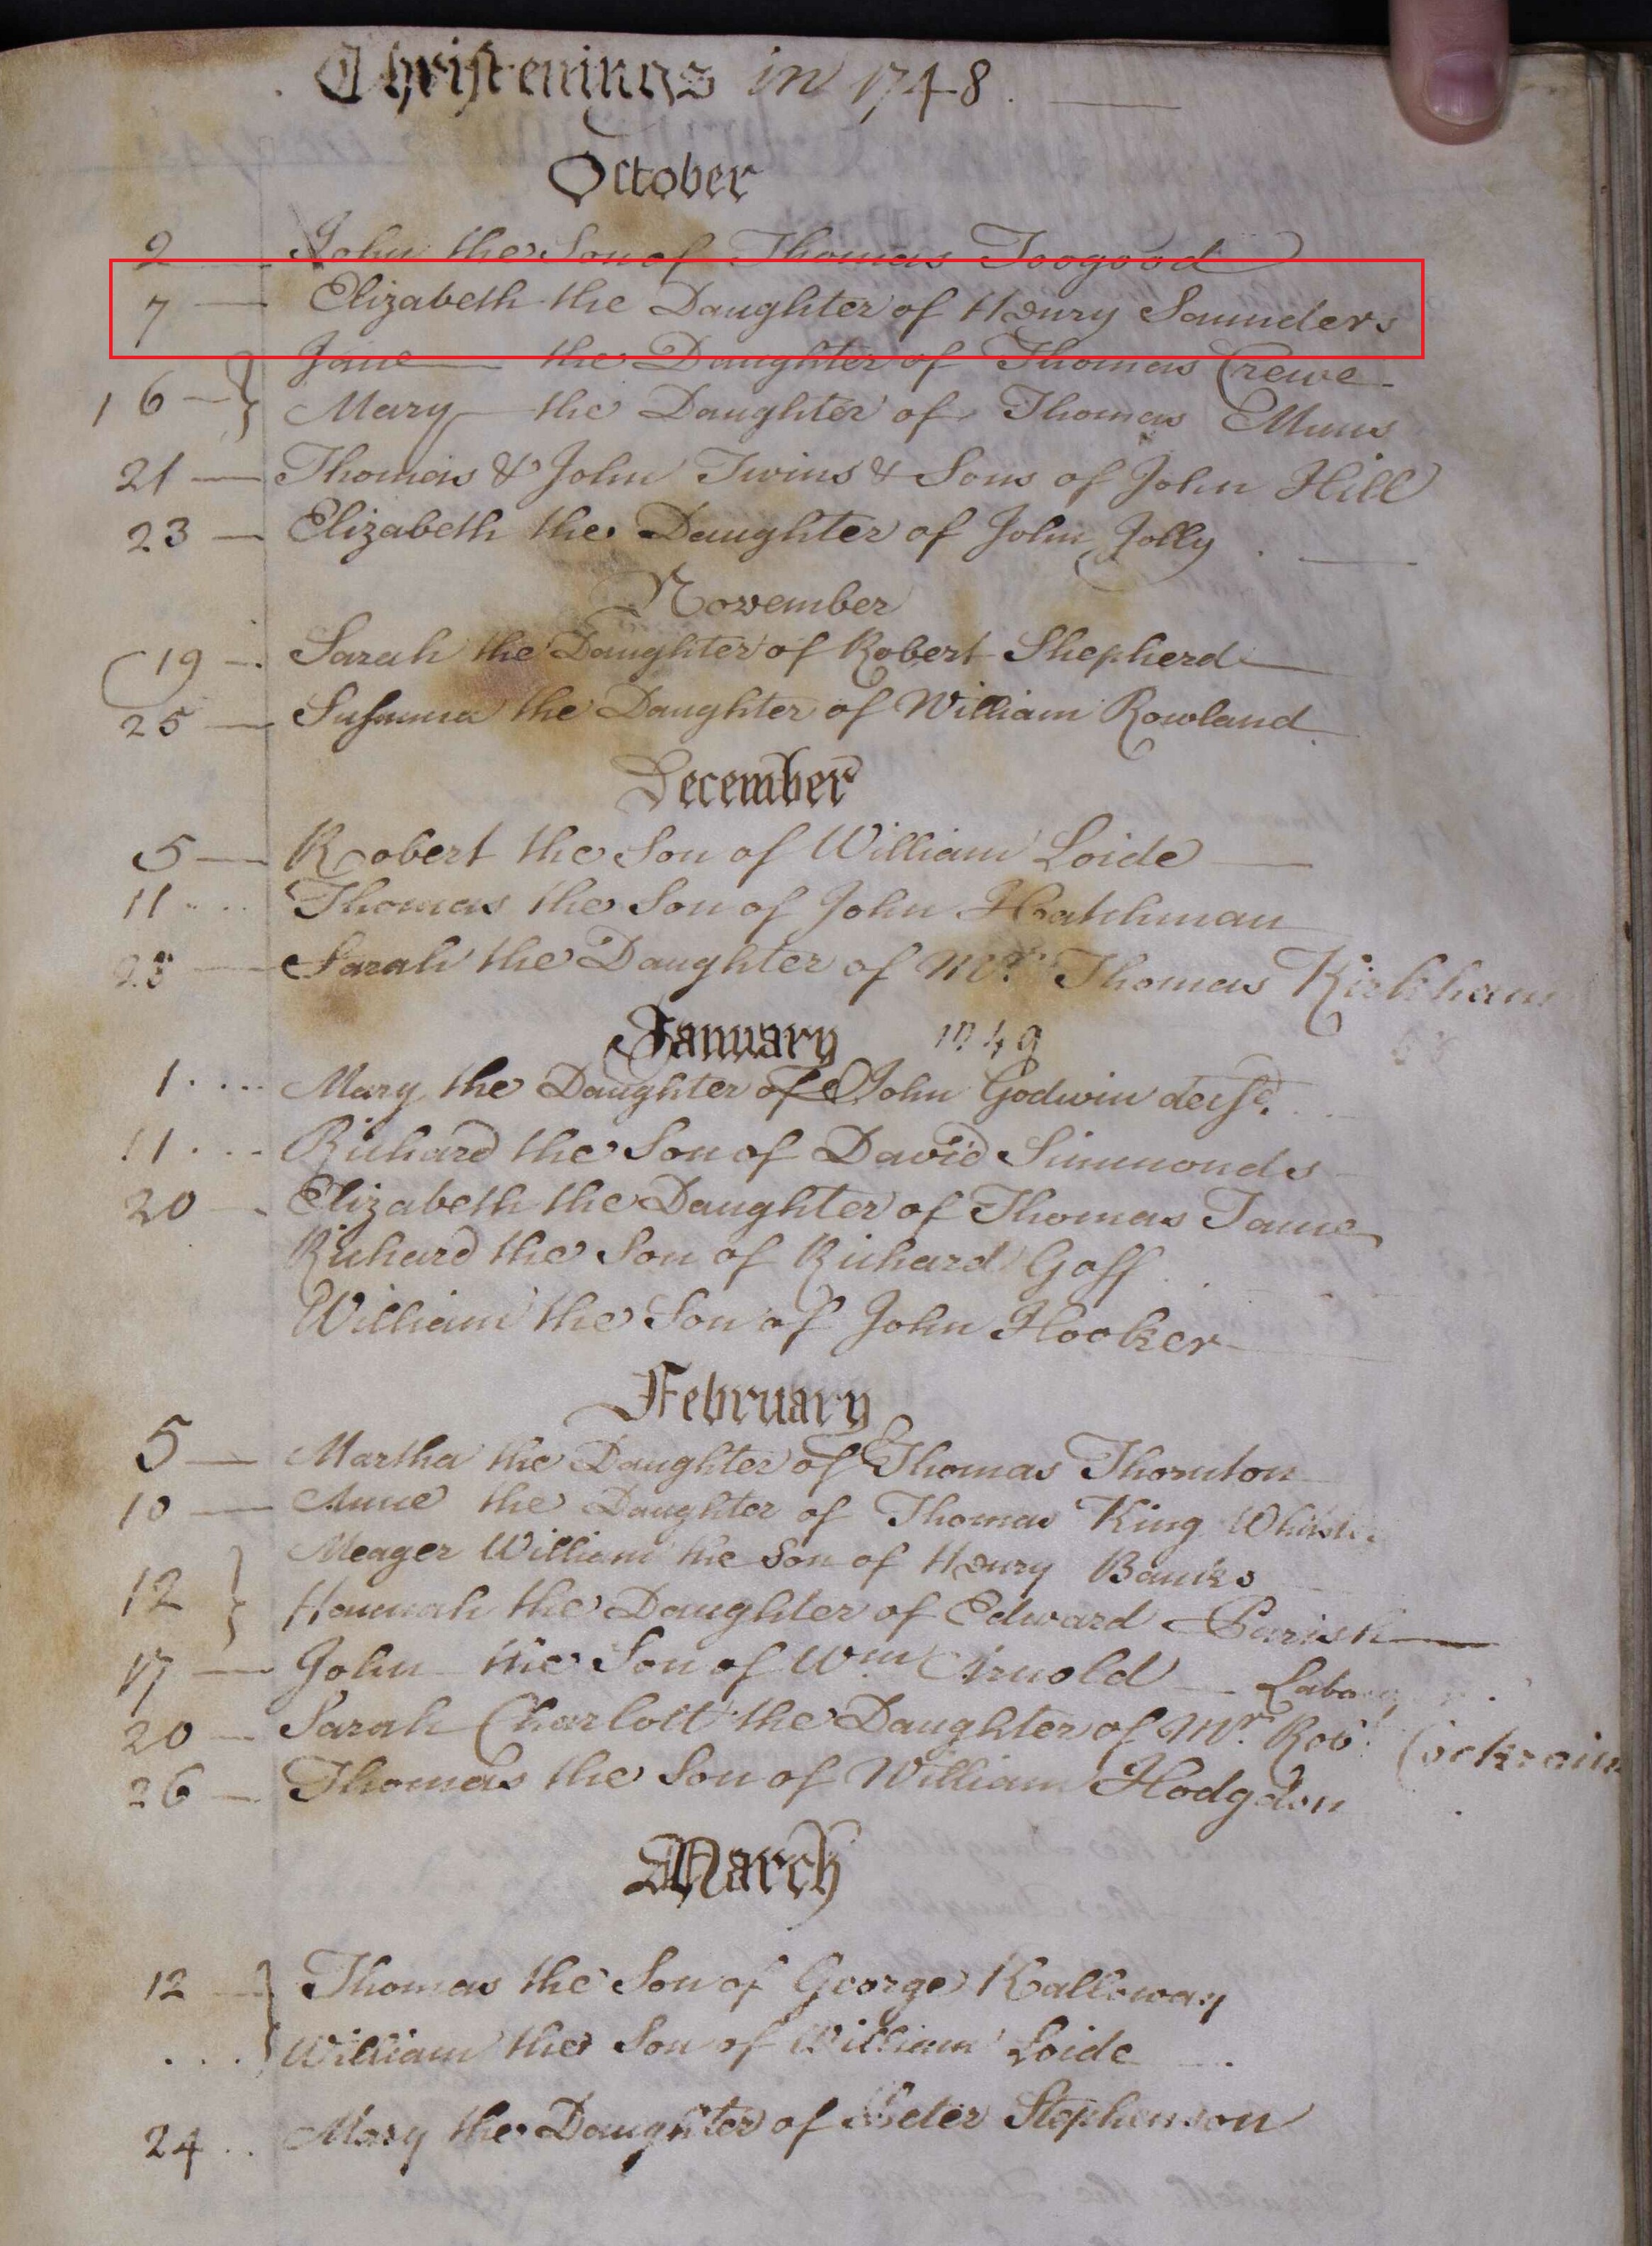 Christenings in 1748.
October
2 John the Son of Thomas Toogood
7 Elizabeth the Daughter of Henry Saunders
Jane the Daughter of Thomas Crewe
16 Mary the Daughter of Thomas
21 Thomas & John Twins & Sons of John Hill
23 Elizabeth the Daughter of John Jolly
November
19 Sarah the Daughter of Robert Shepherd
25 Susanna the Daughter of William Rowland
December
5 Robert the Son of William Loide
11 Thomas the Son of John Hatchman
Sarah the Daughter of Mr. Thomas Kirkham
January 1749
1 Mary the Daughter of John Godwin
11 Richard the Son of David Simmonds
20 Elizabeth the Daughter of Thomas Tame
Richard the Son of Richard Goff
William the Son of John Hooker
February
5 Martha the Daughter of Thomas Thornton
10 Anne the Daughter of Thomas King
Meager William the Son of Henry Banks
12 Hannah the Daughter of Edward Parish
17 John the Son of Wm Arnold
20 Sarah Charlott the Daughter of Mr. Rob.t
26 Thomas the Son of William Hodgdon
March
12 Thomas the Son of George Kalloway
William the Son of William Loide
24 Mary the Daughter of Peter Stephenson